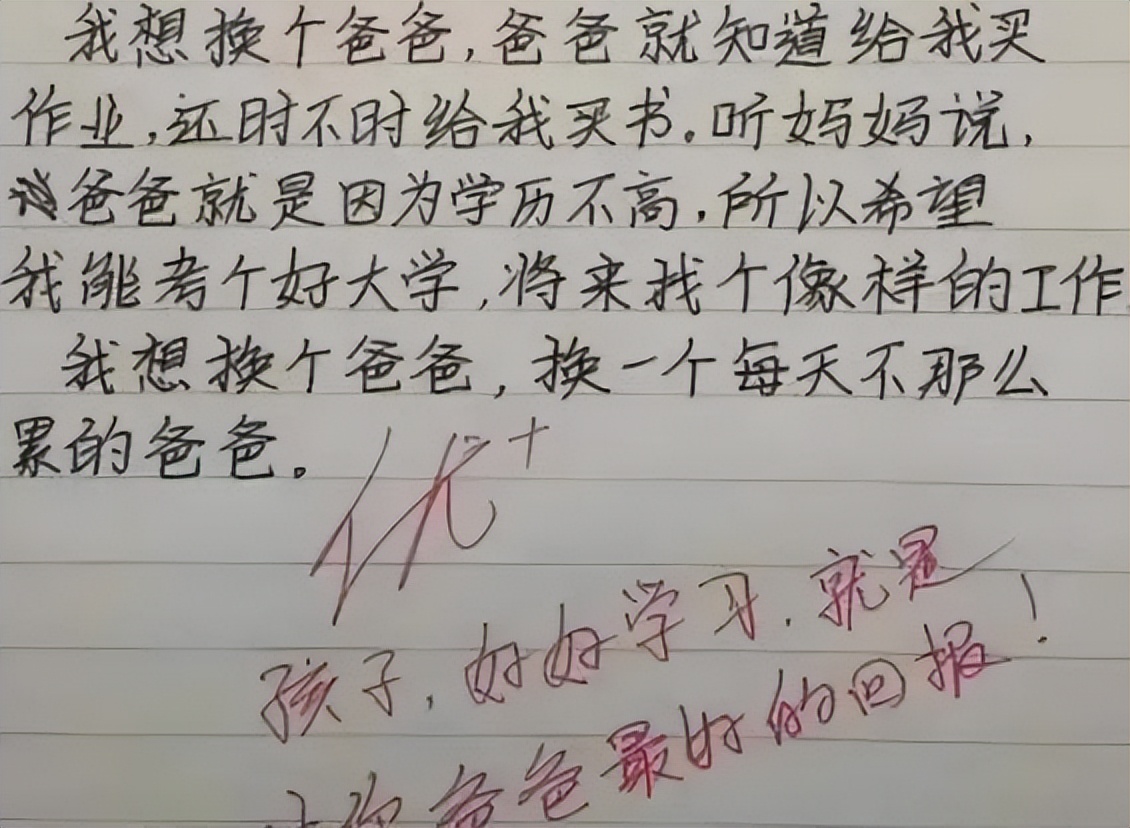 我想换个爸爸,爸爸就知道给我买
作业,还时不时给我买书。听妈妈说,
爸爸就是因为学历不高,所以希望
我能考个好大学,将来找个像样的工作
我想换个爸爸,换一个每天不那么
累的爸爸。
优+
孩子,好好学习,就是
对你爸爸最好的回报!